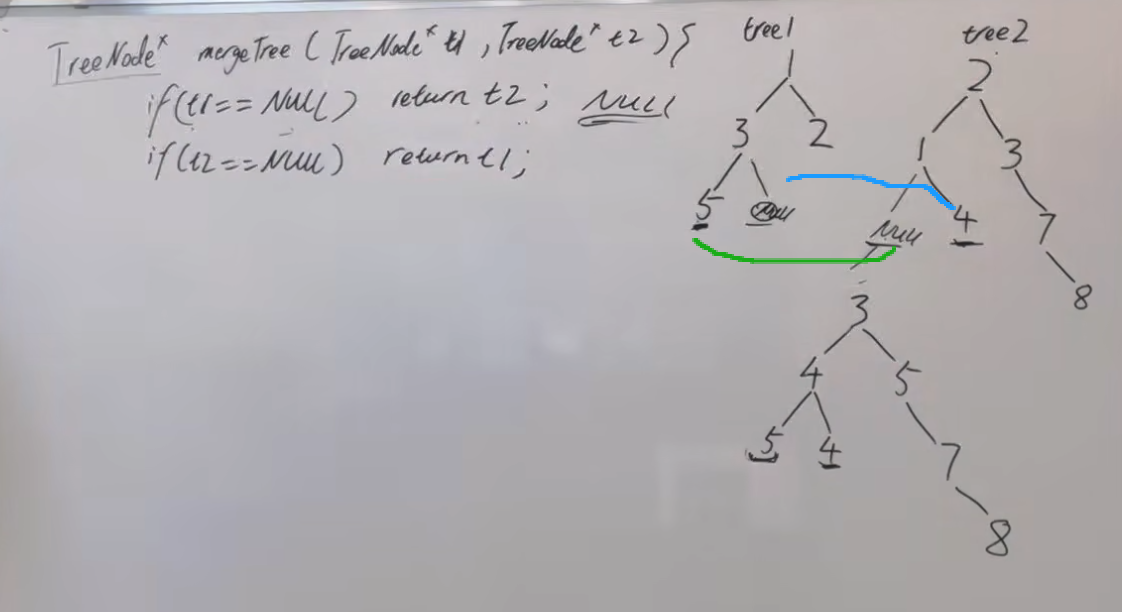 TreeNode* mergeTree (TreeNode* t1, TreeNode* t2) {
if(t1==NULL) return t2; NULL
if(t2==NULL) return t1;
tree1
1
3 2
5 NULL
tree2
2
1 3
NULL 4 7
8
3
4 5
5 4 7
8